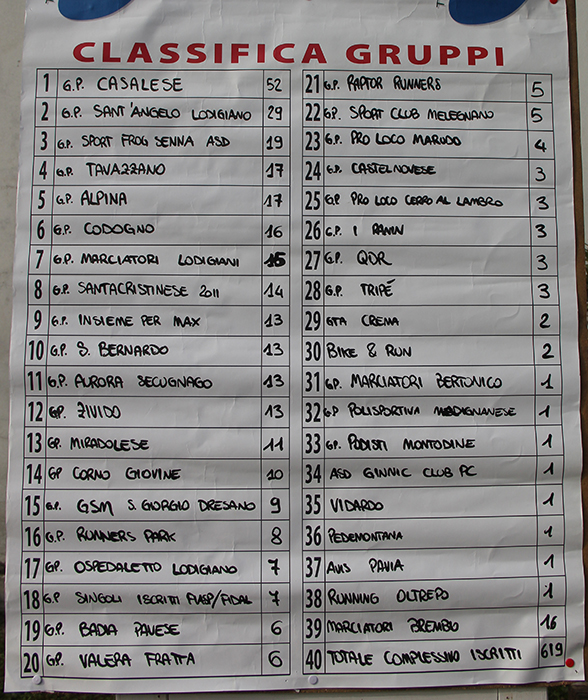 CLASSIFICA GRUPPI
1 G.P. CASALESE 52
2 G.P. SANT'ANGELO LODIGIANO 29
3 G.P. SPORT FROG SENNA ASD 19
4 G.P. TAVAZZANO 17
5 G.P. ALPINA 17
6 G.P. CODOGNO 16
7 G.P. MARCIATORI LODIGIANI 15
8 G.P. SANTACRISTINESE 2011 14
9 G.P. INSIEME PER MAX 13
10 G.P. S. BERNARDO 13
11 G.P. AURORA SECUGNAGO 13
12 GP. ZIVIDO 13
13 GP. MIRADOLESE 11
14 GP CORNO GIOVINE 10
15 G.P. GSM S. GIORGIO DRESANO 9
16 G.P. RUNNERS PARK 8
17 GP. OSPEDALETTO LODIGIANO 7
18 G.P SINGOLI ISCRITTI FIASP/FIDAL 7
19 G.P BADIA PAVESE 6
20 GP. VALERA FRATTA 6
21 G.P. RAPTOR RUNNERS 5
22 G.P. SPORT CLUB MELEGNANO 5
23 G.P. PRO LOCO MARUDO 4
24 G.P. CASTELNOVESE 3
25 G.P PRO LOCO CERRO AL LAMBRO 3
26 G.P. I RANIN 3
27 G.P. QDR 3
28 G.P. TRIPÉ 3
29 GTA CREMA 2
30 BIKE & RUN 2
31 GP. MARCIATORI BERTONICO 1
32 GP POLISPORTIVA MADIGNANESE 1
33 GP. PODISTI MONTODINE 1
34 ASD GINNIC CLUB PC 1
35 VIDARDO 1
36 PEDEMONTANA 1
37 AVIS PAVIA 1
38 RUNNING OLTREPO 1
39 MARCIATORI BREMBIO 16
40 TOTALE COMPLESSIVO ISCRITTI 619